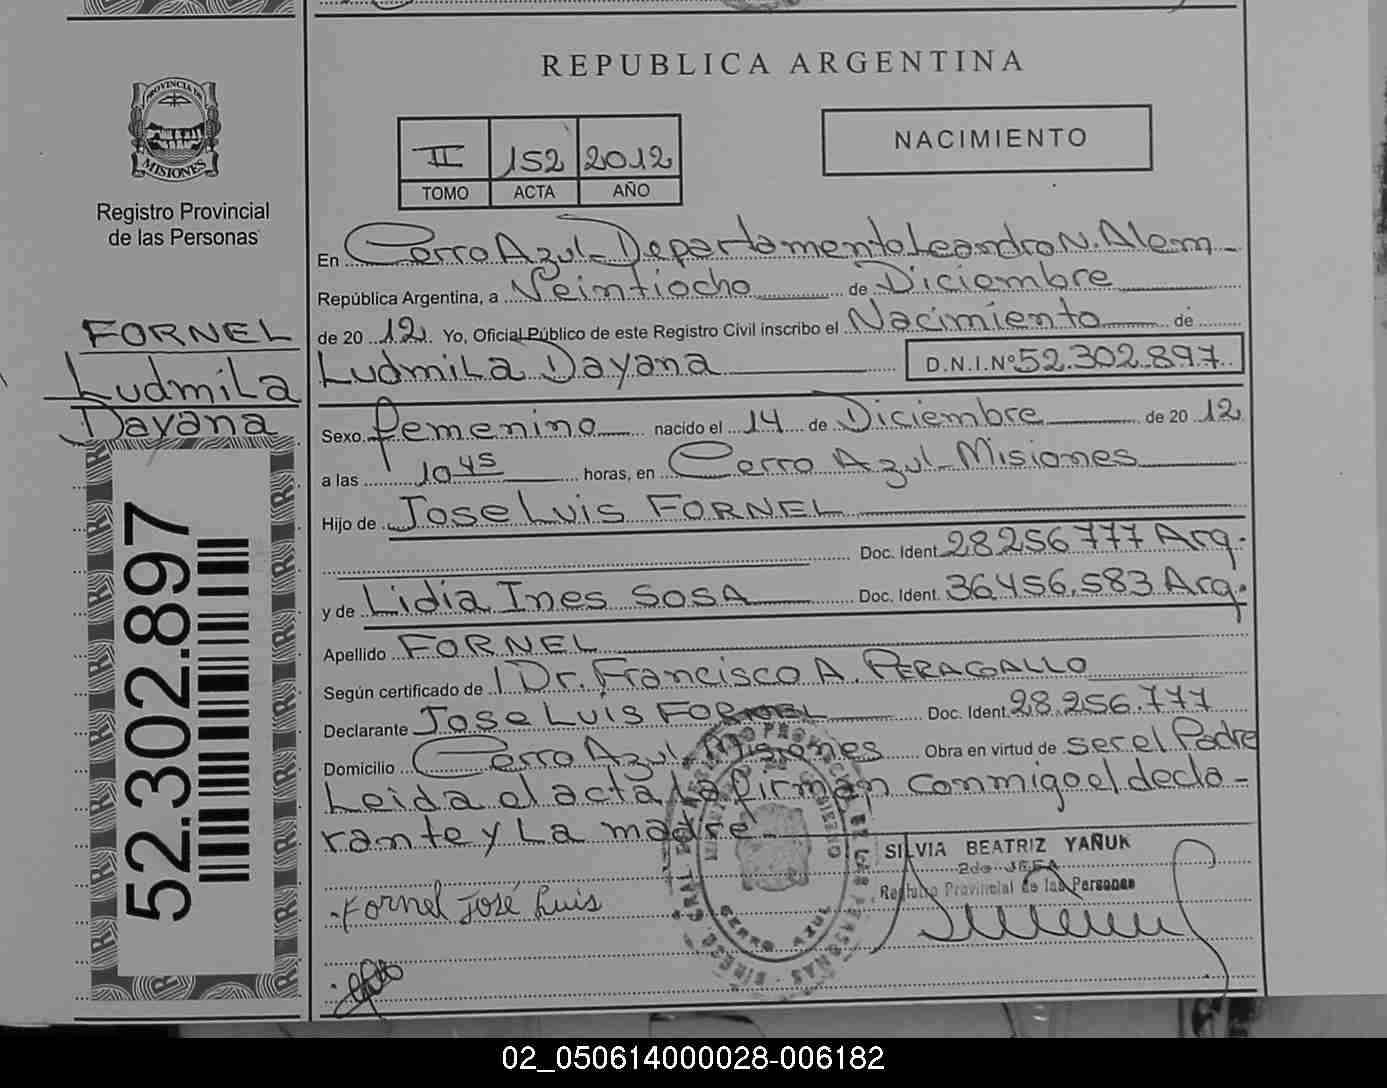 REPUBLICA ARGENTINA
PROVINCIA DE
MISIONES
Registro Provincial
de las Personas
FORNEL
Ludmila
Dayana
52.302.897
II 152 2012
TOMO ACTA AÑO
NACIMIENTO
En Cerro Azul - Departamento Leandro N. Alem -
República Argentina, a Veintiocho de Diciembre
de 20 12 Yo, Oficial Público de este Registro Civil inscribo el Nacimiento de
Ludmila Dayana D.N.I.Nº 52.302.897
Sexo femenino nacido el 14 de Diciembre de 20 12
a las 10 45 horas, en Cerro Azul - Misiones
Hijo de Jose Luis FORNEL
Doc. Ident. 28256777 Arg.
y de Lidia Ines SOSA Doc. Ident. 36.456.583 Arg.
Apellido FORNEL
Según certificado de Dr. Francisco A. PERAGALLO
Declarante Jose Luis FORNEL Doc. Ident. 28.256.777
Domicilio Cerro Azul Misiones Obra en virtud de ser el Padre
Leida el acta la firman conmigo el decla-
rante y La madre -
SILVIA BEATRIZ YAÑUK
2do JEFA
Registro Provincial de las Personas
Fornel José Luis
CERRO AZUL
02_050614000028-006182